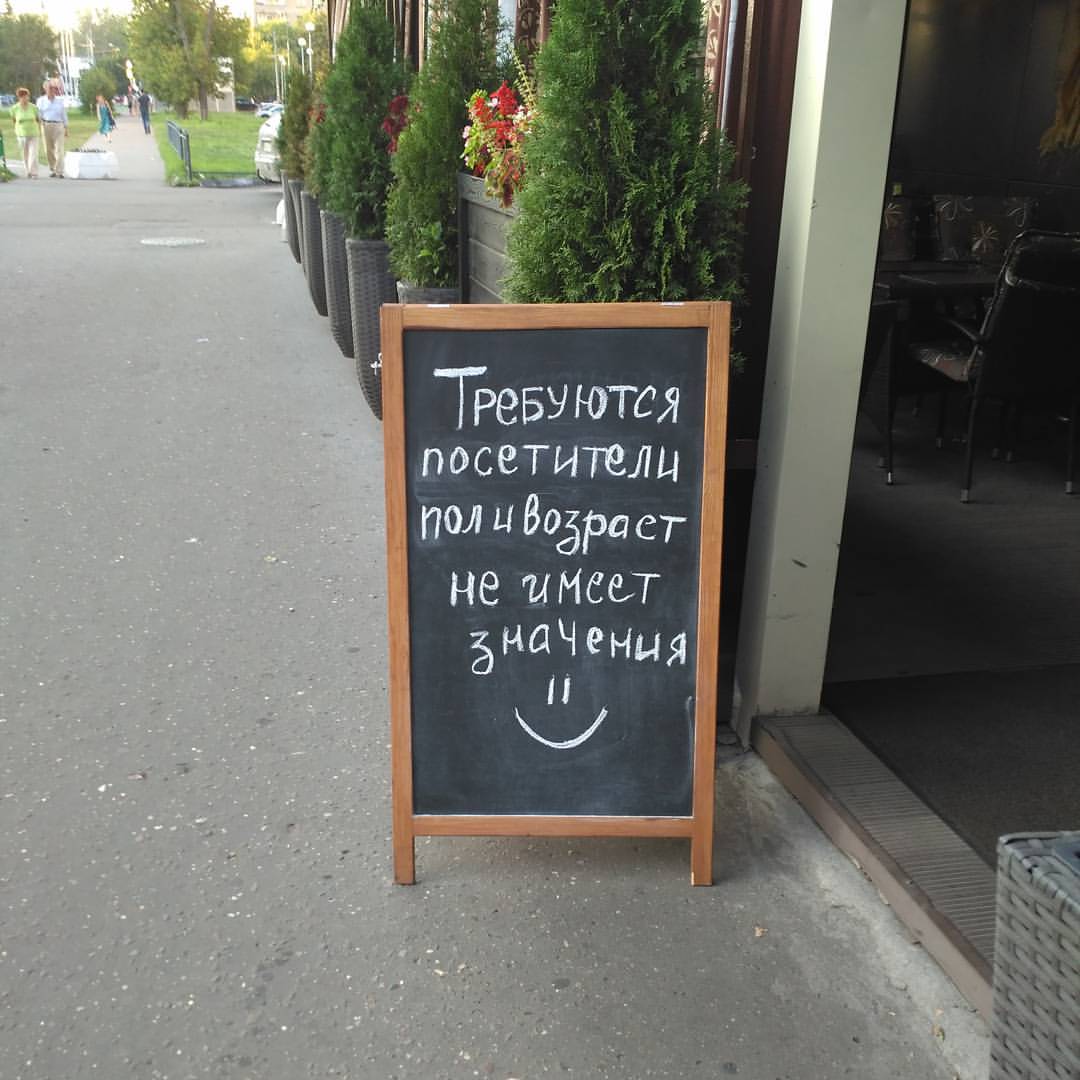 Требуются
посетители
пол и возраст
не имеет
значения